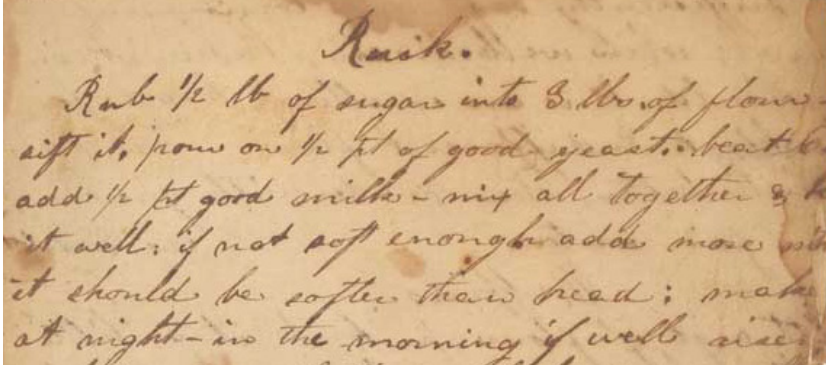 Rusk.
Rub 1/2 lb of sugar into 3 lbs. of flour -
sift it, pour on 1/2 pt of good yeast: beat
add 1/2 pt good milk - mix all together &
it well: if not soft enough add more
it should be softer than bread: make
at night - in the morning if well risen